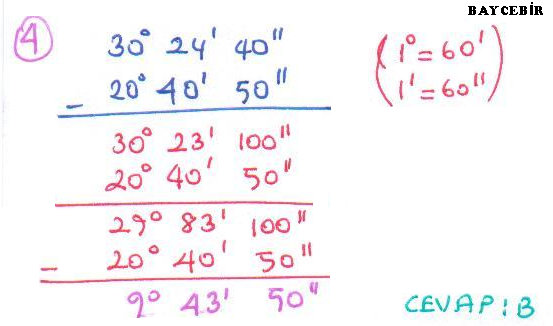 BAYCEBİR
4
30° 24' 40"
- 20° 40' 50"
(1° = 60'
1' = 60")
30° 23' 100"
20° 40' 50"
29° 83' 100"
- 20° 40' 50"
9° 43' 50"
CEVAP: B